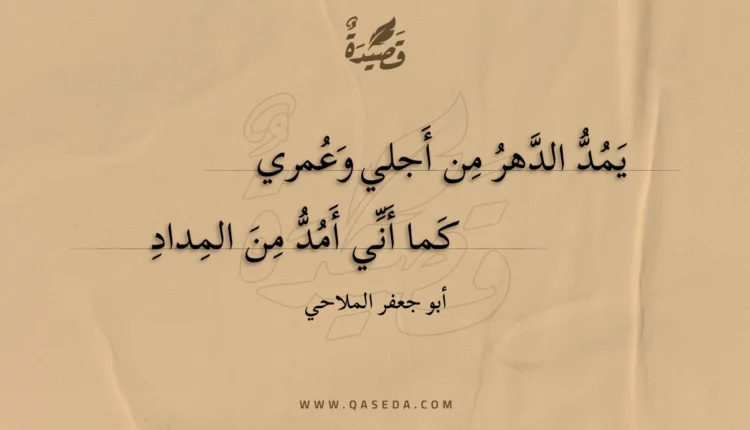 قَصِيدَةٌ
يَمُدُّ الدَّهرُ مِن أَجلي وَعُمري
كَما أَنِّي أَمُدُّ مِنَ المِدادِ
أبو جعفر الملاحي
WWW.QASEDA.COM